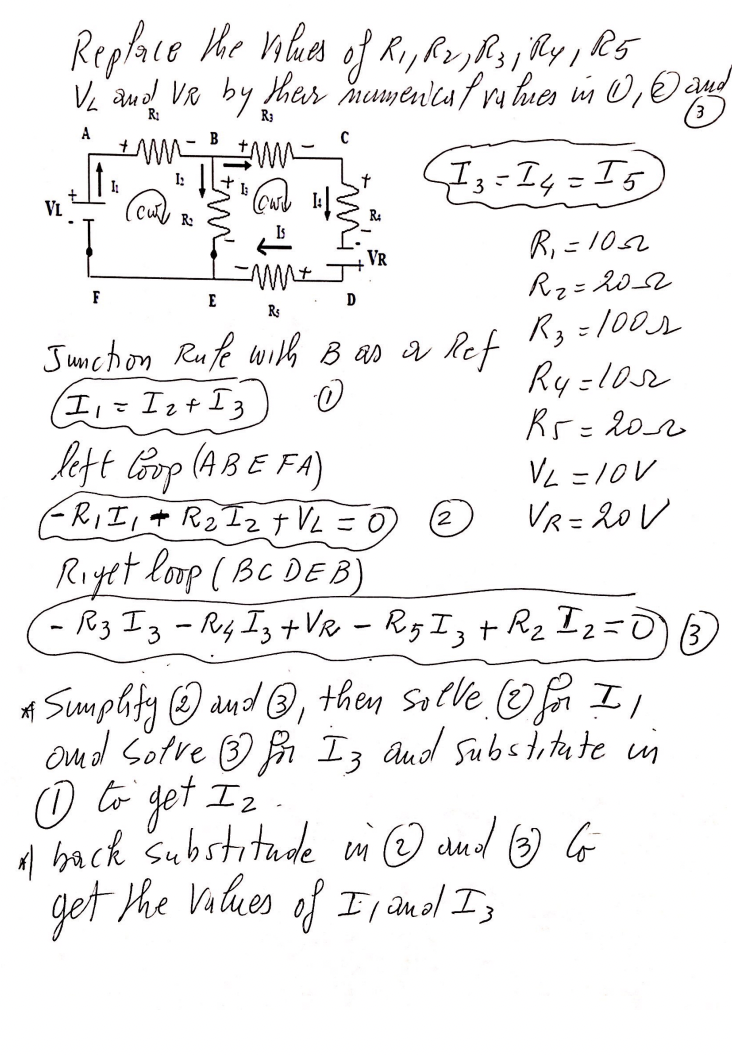 Replace the values of R1, R2, R3, R4, R5
VL and VR by their numerical values in ①, ② and ③
R1
R3
A
+
-
B
+
-
C
I1
I2
+
I3
+
VL
+
-
cw
R2
cw
I4
R4
-
I5
-
-
+
VR
-
+
F
E
R5
D
I3 = I4 = I5
R1 = 10Ω
R2 = 20Ω
R3 = 100Ω
R4 = 10Ω
R5 = 20Ω
VL = 10V
VR = 20V
Junction Rule with B as a Ref
I1 = I2 + I3 ①
left loop (ABEFA)
-R1I1 + R2I2 + VL = 0 ②
Riget loop (BCDEB)
- R3I3 - R4I3 + VR - R5I3 + R2I2 = 0 ③
* Simplify ② and ③, then solve ② for I1
and solve ③ for I3 and substitute in
① to get I2.
* back substitude in ② and ③ to
get the values of I1 and I3